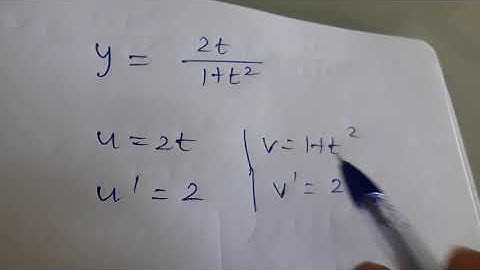 y = 2t / 1+t²
u = 2t | v = 1+t²
u' = 2 | v' = 2